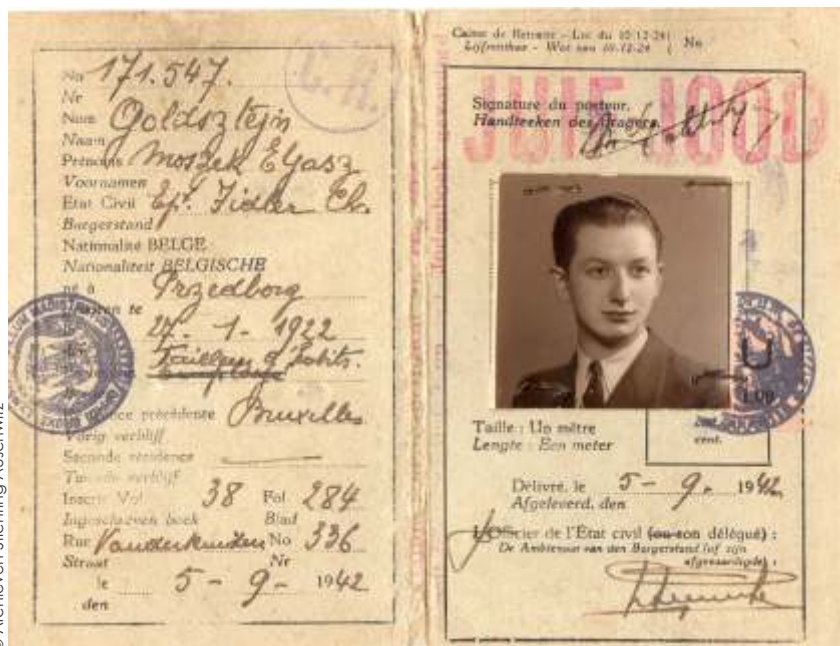 No 171.547.
Nr
Nom Goldsztejn
Naam
Prénoms Moszek Eljasz
Voornamen
Etat Civil Ep. Fidler Ch.
Burgerstand
Nationalité BELGE
Nationaliteit BELGISCHE
né à Przedborg
te
27 - 1 - 1922
Tailleur d'habits.
précédente Bruxelles
Vorig verblijf
Seconde résidence
Tweede verblijf
Inscrit Vol. 38 Fol. 284
Ingeschreven boek Blad
Rue Vanderkinderen No 336
Straat Nr
le 5 - 9 - 1942
den
C.R.
Caisse de Retraite - Loi du 10-12-24
Lijfrentkas - Wet van 10-12-24
No
JUIF-JOOD
Signature du porteur.
Handteeken des dragers.
Taille : Un mètre
Lengte : Een meter
cent.
Délivré, le 5 - 9 - 1942
Afgeleverd, den
L'Officier de l'État civil (ou son délégué) :
De Ambtenaar van den Burgerstand (of zijn
afgevaardigde) :